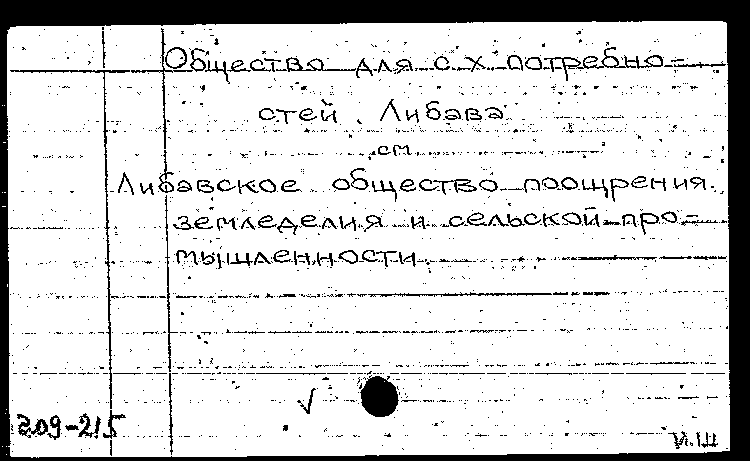 Общество для с х потребно-
стей. Либава
см
Либавское общество поощрения
земледелия и сельской про-
мышленности.
209-215
И.Ш